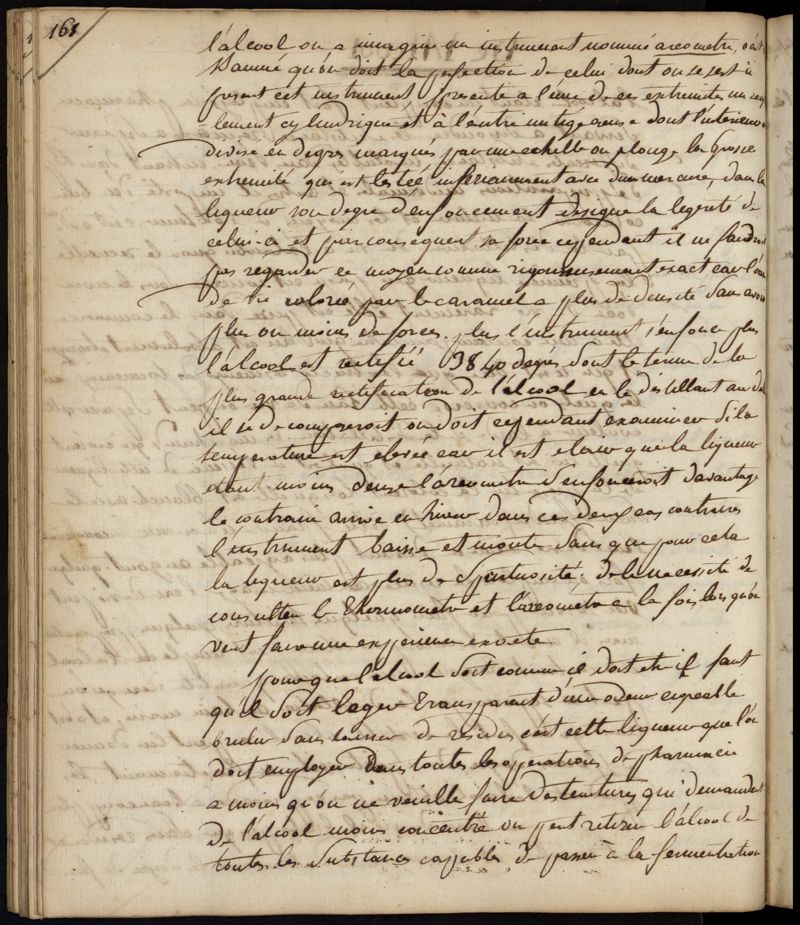 168
l'alcool on a imaginé un instrument nommé areometre, c'est
Baumé qu'on doit la perfection de celui dont on se sert à
present cet instrument presente a l'une de ces extremités un
lement cylindrique et à l'autre un tige creuse dont l'interieur
divisé en degres marqués par une echelle on plonge la grosse
extremité qui est lestée inferieurement avec du mercure, dans la
liqueur son degre d'enfoncement designe la legereté de
celui-ci et par consequent sa force cependant il ne faudroit
pas regarder ce moyen comme rigoureusement exact car l'eau
de vie colorée par le caramel a plus de densité sans avoir
plus ou moins de forces. plus l'instrument s'enfonce plus
l'alcool est rectifié 38 40 degrés sont le terme de la
plus grande rectification de l'alcool en le distillant au de
il se decomposeroit on doit cependant examiner si la
temperature est elevée car il est clair que la liqueur
etant moins dense l'áreometre s'enfonceroit davantage
le contraire arrive en hiver dans ces deux cas contraires
l'instrument baisse et monte sans que pour cela
la liqueur est plus de spirituosité. de la necessité de
consulter le thermometre et l'areometre a la fois lorsqu'on
veut faire une experience exacte
pour que l'alcool soit comme il doit etre il faut
qu'il soit leger transparent d'une odeur agreable
bruler sans laisser de residus c'est cette liqueur que l'on
doit employer dans toutes les operations de pharmacie
a moins qu'on ne veuille faire des teintures qui demandent
de l'alcool moins concentré on peut retirer l'alcool de
toutes les substances capables de passer à la fermentation